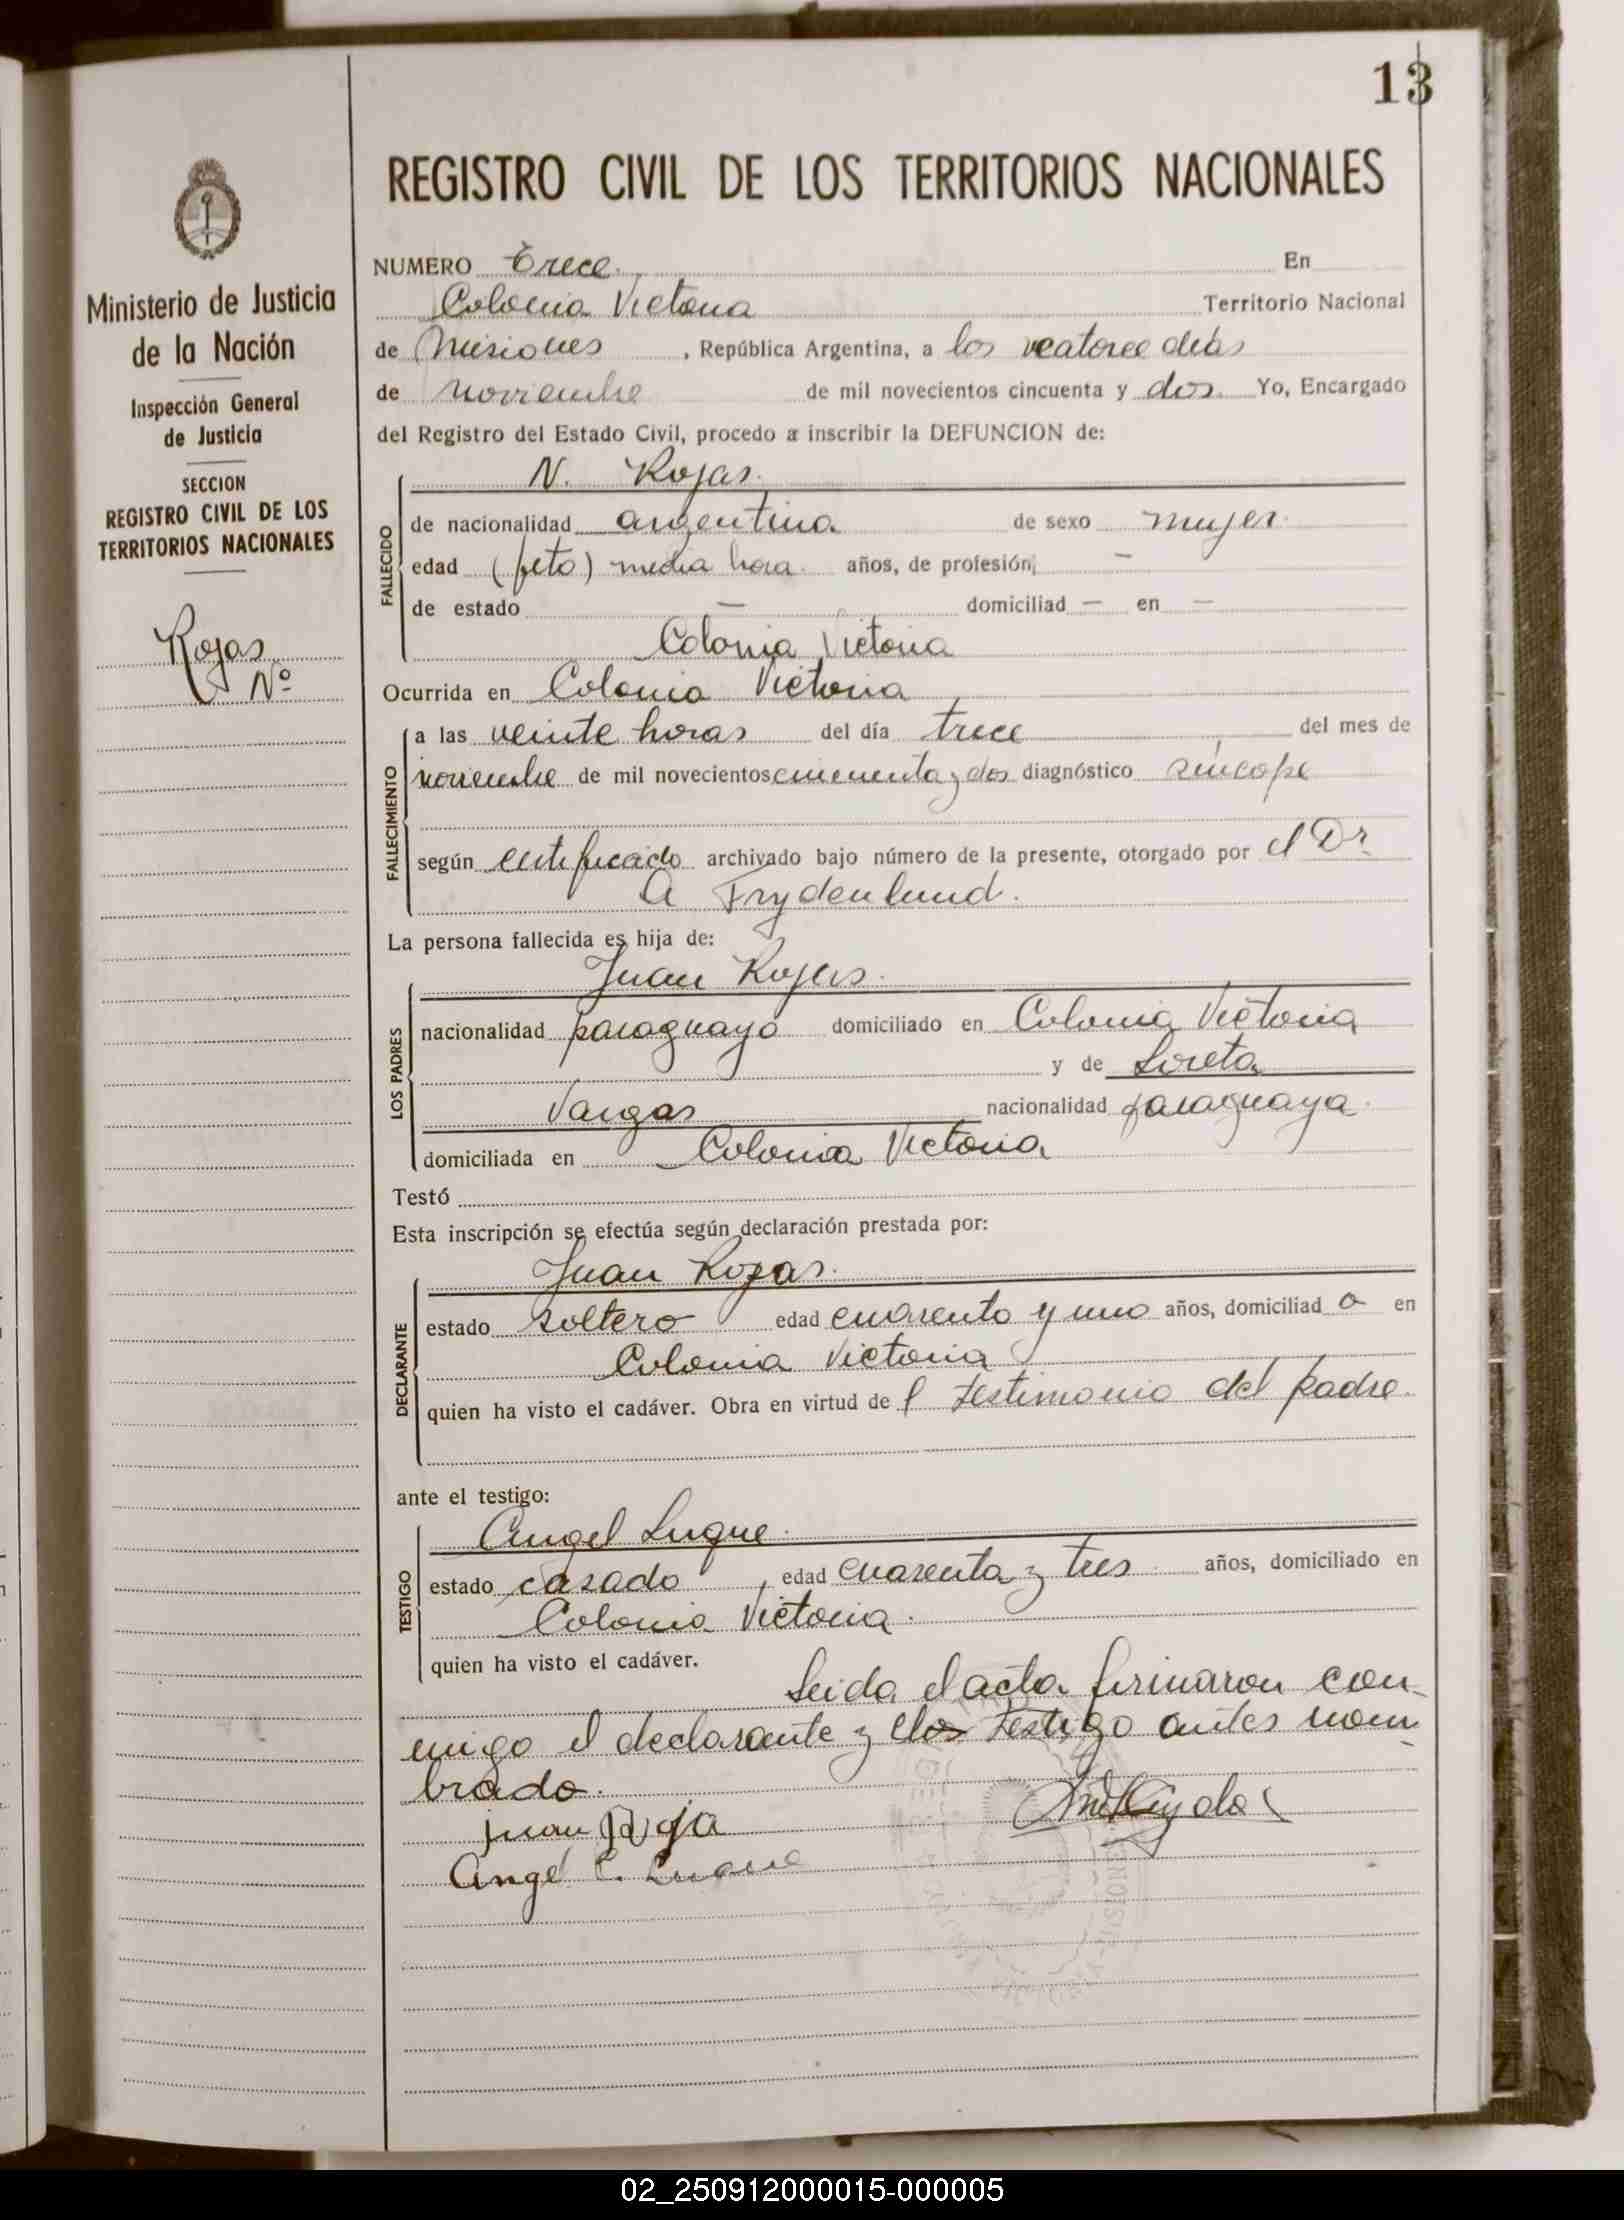 13
REGISTRO CIVIL DE LOS TERRITORIOS NACIONALES
Ministerio de Justicia
de la Nación
Inspección General
de Justicia
SECCION
REGISTRO CIVIL DE LOS
TERRITORIOS NACIONALES
Rojas
Nº
NUMERO Trece. En
Colonia Victoria Territorio Nacional
de Misiones, República Argentina, a los catorce dias
de noviembre de mil novecientos cincuenta y dos. Yo, Encargado
del Registro del Estado Civil, procedo a inscribir la DEFUNCION de:
N. Rojas.
FALLECIDO
de nacionalidad argentina de sexo mujer.
edad (feto) media hora. años, de profesión, —
de estado — domiciliad — en —
Colonia Victoria
Ocurrida en Colonia Victoria
FALLECIMIENTO
a las veinte horas del día trece del mes de
noviembre de mil novecientos cincuenta y dos diagnóstico síncope
según certificado archivado bajo número de la presente, otorgado por el Dr
A Frydenlund.
La persona fallecida es hija de:
Juan Rojas.
LOS PADRES
nacionalidad paraguayo domiciliado en Colonia Victoria
y de Loreta
Vargas nacionalidad paraguaya.
domiciliada en Colonia Victoria
Testó
Esta inscripción se efectúa según declaración prestada por:
Juan Rojas.
DECLARANTE
estado soltero edad cuarenta y uno años, domiciliad o en
Colonia Victoria
quien ha visto el cadáver. Obra en virtud de l testimonio del padre.
ante el testigo:
Angel Luque.
TESTIGO
estado casado, edad cuarenta y tres años, domiciliado en
Colonia Victoria.
quien ha visto el cadáver.
Leida el acta firmaron con-
migo el declarante y el testigo antes nom-
brado.
Juan Roja
Angel C. Luque
02_250912000015-000005